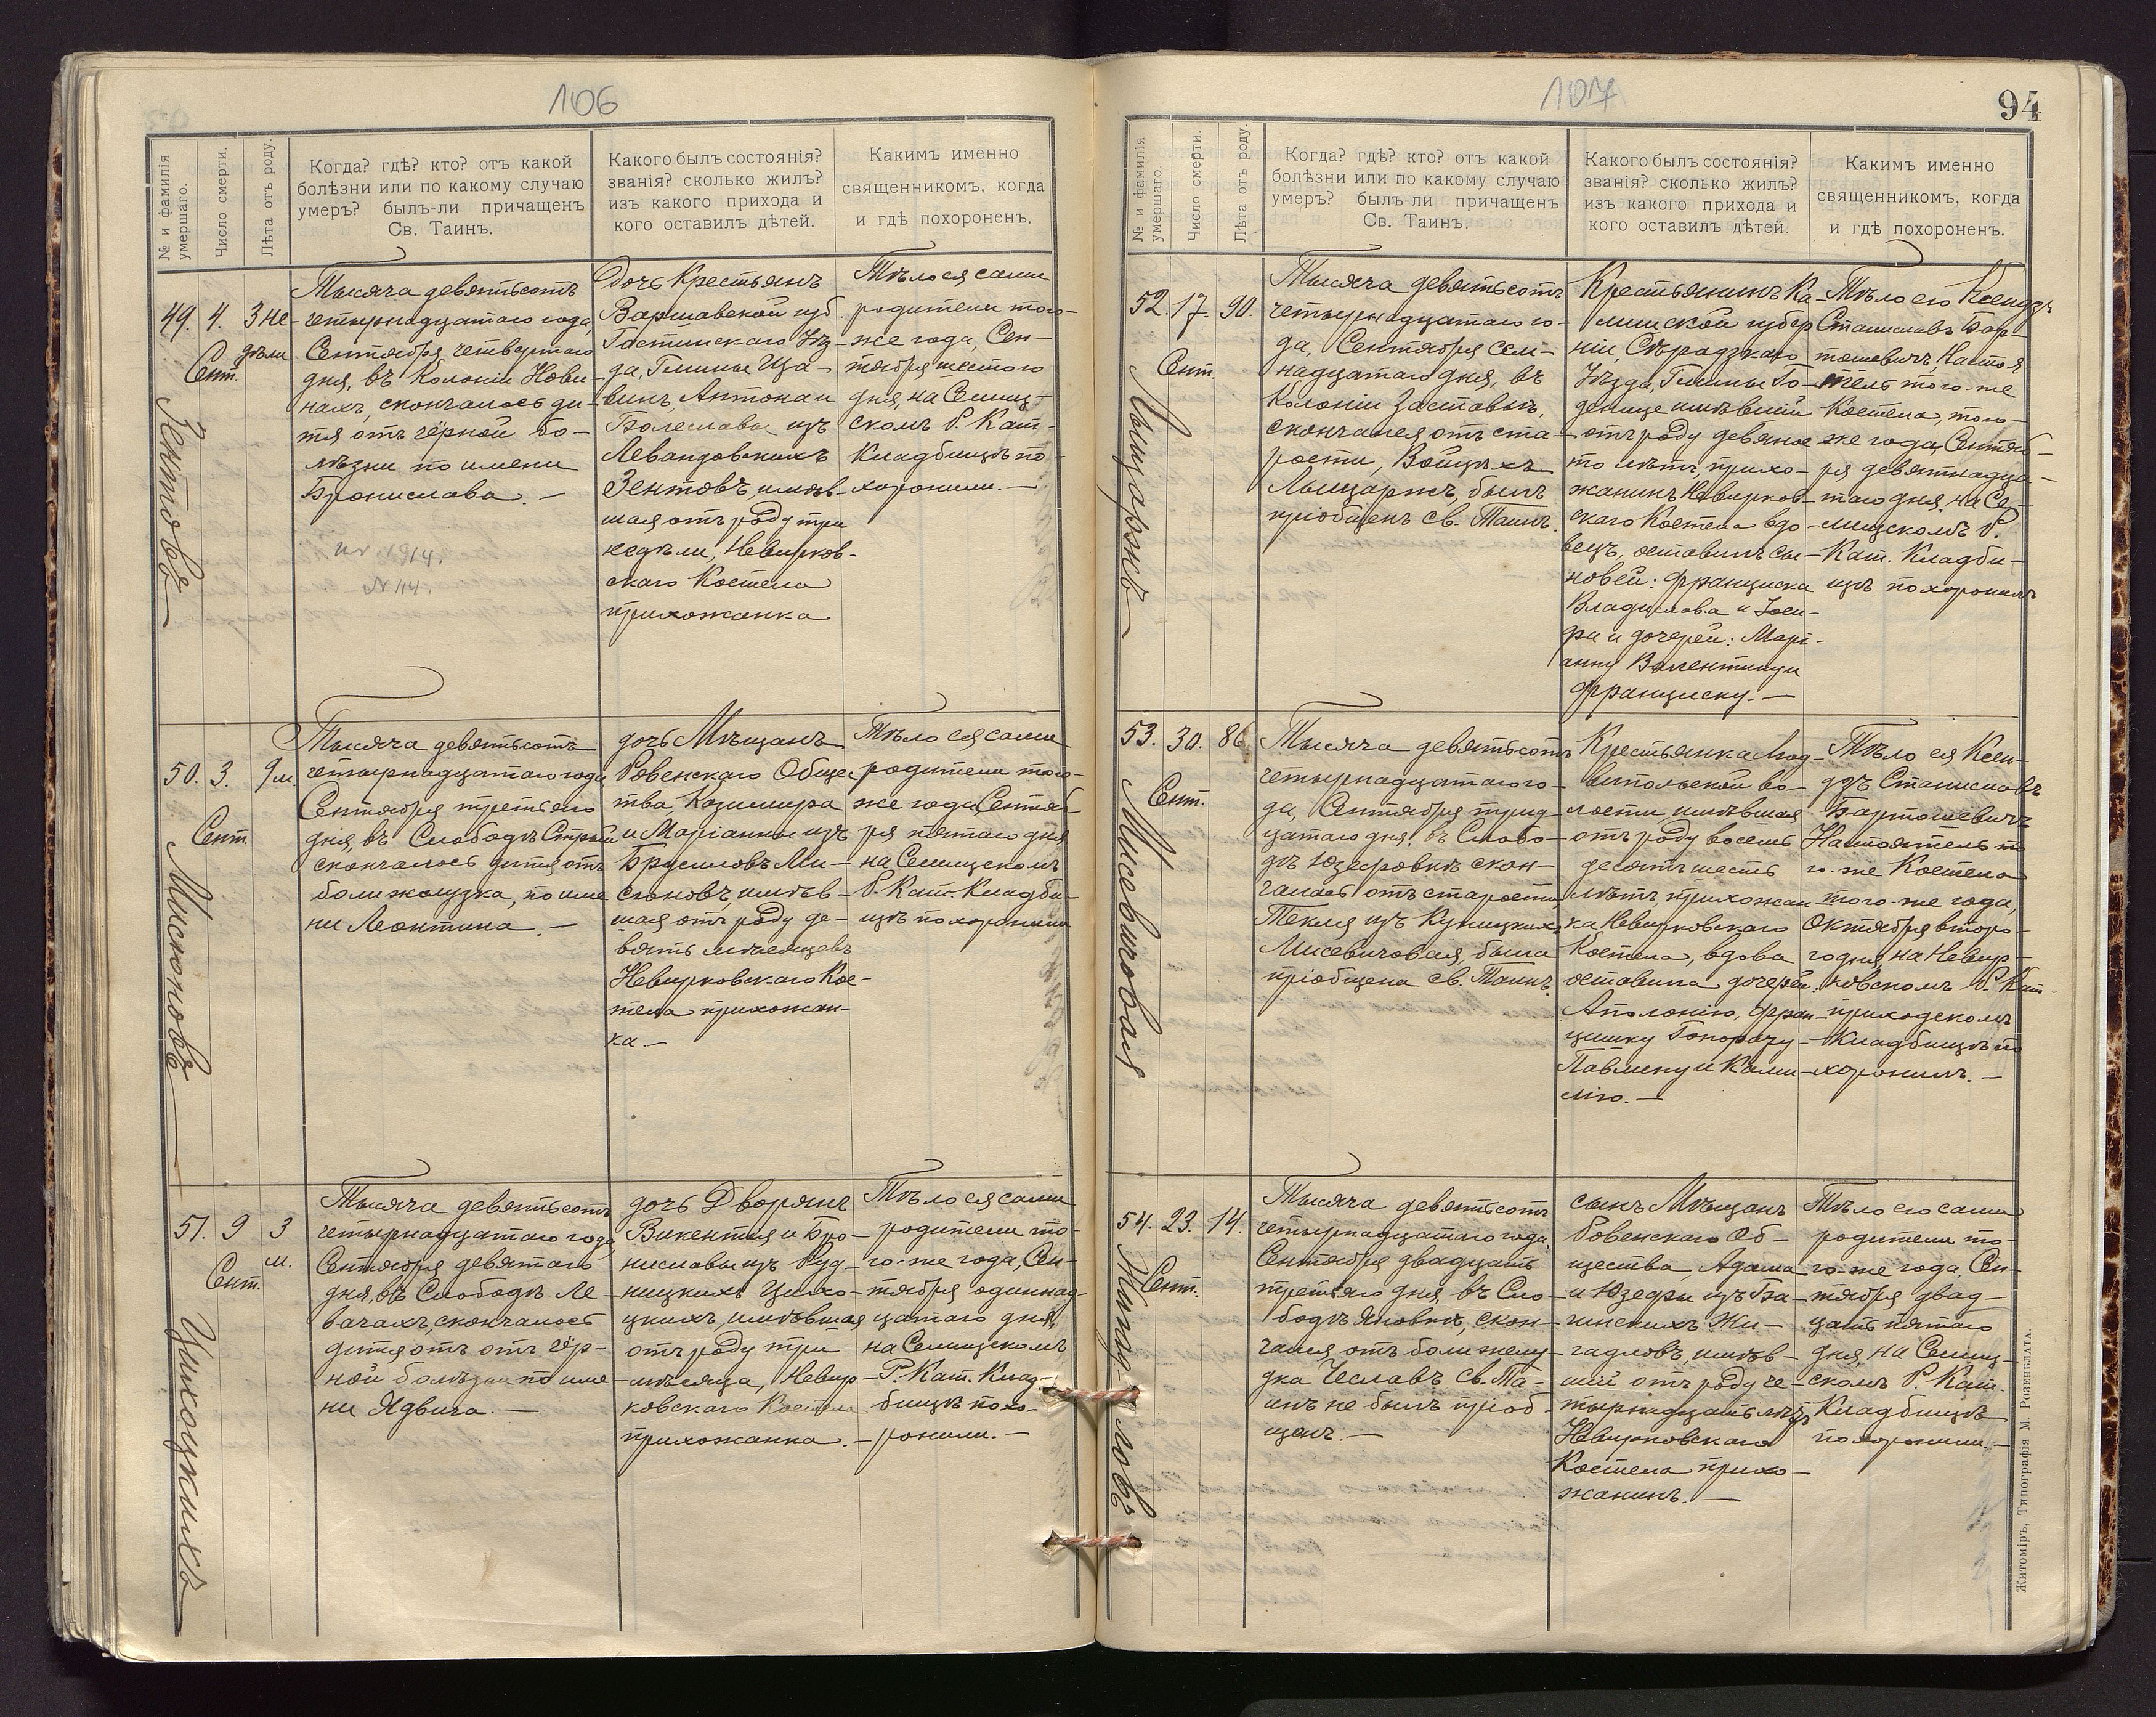 106
№ и фамилія
умершаго.
Число смерти.
Лѣта отъ роду.
Когда? гдѣ? кто? отъ какой
болѣзни или по какому случаю
умеръ? былъ-ли причащенъ
Св. Таинъ.
Какого былъ состоянія?
званія? сколько жилъ?
изъ какого прихода и
кого оставилъ дѣтей.
Какимъ именно
священникомъ, когда
и гдѣ похороненъ.
49. 4. 3 не-
дѣли
Сент.
Зентовъ
Тысяча девятьсотъ
четырнадцатаго года,
Сентября четвертаго
дня, въ Колоніи Нови-
нахъ, скончалось ди-
тя отъ чёрной бо-
лѣзни по имени
Бронислава. —
nr 1914.
N 114.
Дочь Крестьянъ
Варшавской губ.
Гостинскаго Уѣз-
да, Гмины Ща-
винъ, Антона и
Болеславы изъ
Левандовскихъ
Зентовъ, имѣв-
шая отъ роду три
недѣли, Невирков-
скаго Костела
прихожанка
Тѣло ея сами
родители того-
же года, Сен-
тября шестого
дня, на Селищ-
скомъ Р. Кат.
Кладбищѣ по-
хоронили. —
50. 3. 9 м.
Сент.
Мисюновъ
Тысяча девятьсотъ
четырнадцатаго года,
Сентября третьяго
дня, въ Слободѣ
скончалось дитя отъ
боли желудка, по име
ни Леонтина. —
дочь Мѣщанъ
Ровенскаго Общес
тва Казимира
и Маріанны изъ
Брусиловъ Ми-
сюновъ, имѣв-
шая отъ роду де-
вять мѣсяцевъ
Невирковскаго Кос-
тела прихожан-
ка. —
Тѣло ея сами
родители того-
же года, Сентяб-
ря пятаго дня
на Селищскомъ
Р. Кат. Кладби-
щѣ похоронили
51. 9 3
м.
Сент.
Цихоцкихъ
Тысяча девятьсотъ
четырнадцатаго года,
Сентября девятаго
дня, въ Слободѣ Ле-
вачахъ, скончалось
дитя отъ отъ чёр-
ной болѣзни по име-
ни Ядвига. —
дочь Дворянъ
Викентія и Бро-
ниславы изъ Руд-
ницкихъ Цихо-
цкихъ, имѣвшая
отъ роду три
мѣсяца, Невир-
ковскаго Костела
прихожанка. —
Тѣло ея сами
родители то-
го-же года, Сен-
тября одиннад-
цатаго дня,
на Селищскомъ
Р. Кат. Клад-
бищѣ похо-
ронили. —
107
94
№ и фамилія
умершаго.
Число смерти.
Лѣта отъ роду.
Когда? гдѣ? кто? отъ какой
болѣзни или по какому случаю
умеръ? былъ-ли причащенъ
Св. Таинъ.
Какого былъ состоянія?
званія? сколько жилъ?
изъ какого прихода и
кого оставилъ дѣтей.
Какимъ именно
священникомъ, когда
и гдѣ похороненъ.
52. 17. 90.
Сент.
Лыщаржъ
Тысяча девятьсотъ
четырнадцатаго го-
да, Сентября сем-
надцатаго дня, въ
Колоніи Заставьѣ,
скончался отъ ста-
рости, Войцѣхъ
Лыщаржъ, былъ
пріобщенъ Св. Таинъ.
Крестьянинъ Ка-
лишской губер
ніи, Сѣрадзкаго
Уѣзда, Гмины Го-
денице имѣвшій
отъ роду девянос
то лѣтъ, прихо-
жанинъ Невирков-
скаго Костела вдо-
вецъ, оставилъ сы-
новей: Франциска
Владислава и Іоси-
фа и дочерей: Марі-
анну Валентину и
Франциску. —
Тѣло его Ксендзъ
Станиславъ Бар-
тошевичъ, Настоя
тель того-же
Костела, того-
же года, Сентяб-
ря девятнадца-
таго дня, на Се-
лищскомъ Р.
Кат. Кладби-
щѣ похоронилъ
53. 30. 86.
Сент.
Мисевичовая
Тысяча девятьсотъ
четырнадцатаго го-
да, Сентября трид-
цатаго дня, въ Слобо-
дѣ Юзефовкѣ скон-
чалась отъ старости
Текля изъ Куницкихъ
Мисевичовая, была
пріобщена Св. Таинъ.
Крестьянка Люд-
випольской во-
лости, имѣвшая
отъ роду восемь
десятъ шесть
лѣтъ, прихожан
ка Невирковскаго
Костела, вдова
оставила дочерей:
Аполонію, Фран-
цишку Гонорату
Павлину и Ками-
лію. —
Тѣло ея Ксен-
дзъ Станиславъ
Бартошевичъ
Настоятель то
го-же Костела
того-же года,
Октября второ-
го дня, на Невир-
ковскомъ Р. Кат.
приходскомъ
Кладбищѣ по
хоронилъ. —
54. 23. 14.
Сент.
Жигад-ловъ
Тысяча девятьсотъ
четырнадцатаго года,
Сентября двадцать
третьяго дня, въ Сло-
бодѣ Яновкѣ, скон-
чался отъ боли желу-
дка Чеславъ Св. Та-
инъ не былъ пріоб-
щенъ. —
сынъ Мѣщанъ
Ровенскаго Об-
щества, Адама
и Юзефы изъ Ба-
чинскихъ Жи-
гадловъ, имѣв-
шій отъ роду че-
тырнадцать лѣтъ
Невирковскаго
Костела прихо-
жанинъ. —
Тѣло его сами
родители то-
го-же года, Сен-
тября двад-
цать пятаго
дня, на Селищ-
скомъ Р. Кат.
Кладбищѣ
похоронили. —
Житоміръ, Типографія М. Розенблата.